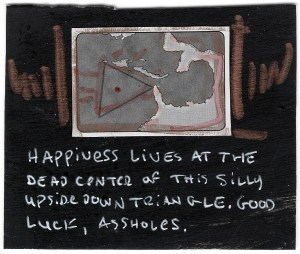 HAPPINESS LIVES AT THE
DEAD CENTER OF THIS SILLY
UPSIDE DOWN TRIANGLE. GOOD
LUCK, ASSHOLES.